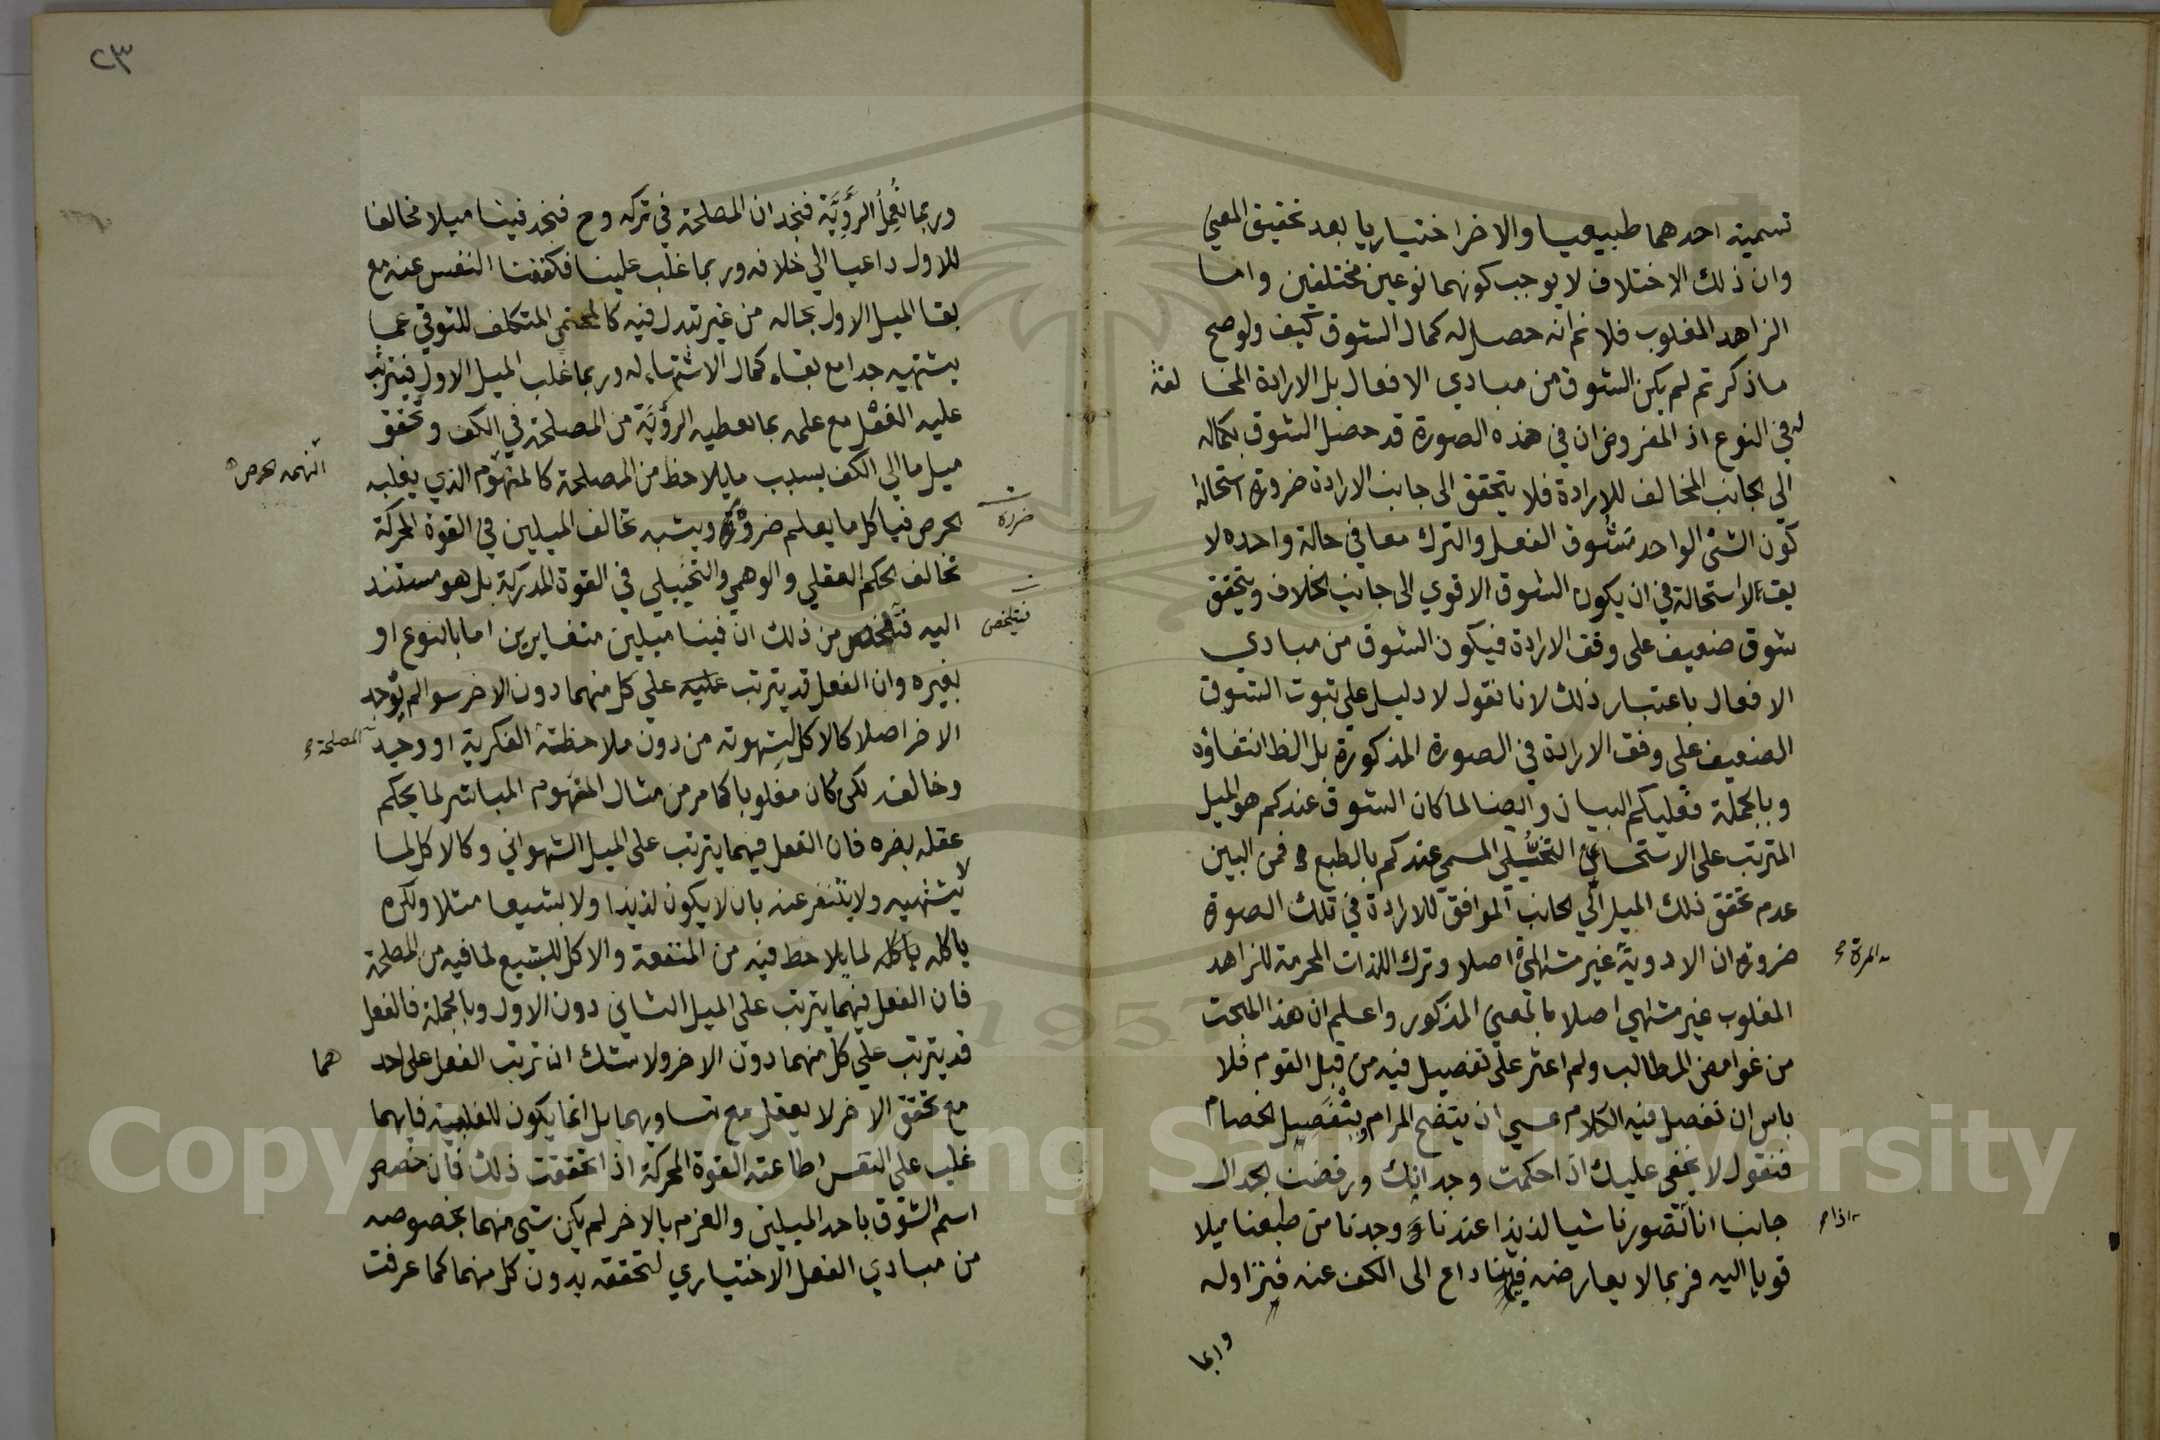 تسمية احدهما طبيعيا والاخر اختياريا بعد تحقيق المعنى
وان ذلك الاختلاف لا يوجب كونهما نوعين مختلفين واما
الزاهد المغلوب فلا نم انه حصل له كمال الشوق كيف ولو صح
ما ذكرتم لم يكن الشوق من مبادي الافعال بل الارادة المخا لفة
له في النوع اذ المفروض ان في هذه الصورة قد حصل الشوق بكماله
الى الجانب المخالف للارادة فلا يتحقق الى جانب الارادة ضرورة استحالة
كون الشئ الواحد متشوق الفعل والترك معا في حالة واحده لا
يقء الاستحالة في ان يكون الشوق الاقوي الى جانب الخلاف ويتحقق
شوق ضعيف على وفق الارادة فيكون الشوق من مبادي
الافعال باعتبار ذلك لانا نقول لا دليل على ثبوت الشوق
الضعيف على وفق الارادة في الصورة المذكورة بل الظ انتفاؤه
وبالجملة فعليكم البيان وايضا لما كان الشوق عندكم هو الميل
المترتب على الاستحسان التخيلى المسمى عندكم بالطبع فمن البين
عدم تحقق ذلك الميل الي الجانب الموافق للارادة في تلك الصورة
ضرورة ان الادوية غير مشتهاة اصلا وترك اللذات المحرمة للزاهد
المرة
المغلوب غير مشتهي اصلا بالمعنى المذكور واعلم ان هذا المبحث
من غوامض المطالب ولم اعثر على تفصيل فيه من قبل القوم فلا
باس ان نفصل فيه الكلام عسى ان يتضح المرام بتفصيل الخصام
فنقول لا يخفى عليك اذا حكمت وجدانك ورفضت الجدال
جانبا انا تصورنا شيا لذيذا عندنا وجدنا من طبعنا ميلا
اذا
قويا اليه فربما لا يعارضه فينا داع الى الكف عنه فنزاوله
٢٣
وربما نُعمِل الرؤيَّة فنجد ان المصلحة في تركه وح فنجد فينا ميلا مخالفا
للاول داعيا الي خلافه وربما غلب علينا فكففنا النفس عنه مع
بقا الميل الاول بحاله من غير تبدل فيه كالمحتمى المتكلف للتوقي عما
يشتهيه جدا مع بقاء كمال الاشتهاء له وربما غلب الميل الاول فيترتب
عليه الفعل مع علمه بما يعطيه الرؤيَّة من المصلحة في الكف وتحقق
ميل ما الي الكف بسبب ما يلاحظ من المصلحة كالمنهوم الذي يغلبه
النهمه الحرص
الحرص فياكل ما يعلم ضرره ويشبه تخالف الميلين في القوة المحركة
ضرره
تخالف الحكم العقلي والوهمي والتخييلي في القوة المدركة بل هو مستند
اليه فتلخص من ذلك ان فينا ميلين متغايرين اما بالنوع او
فتلخص
بغيره وان الفعل قد يترتب عليه علي كل منهما دون الاخر سوا لم يوجد
الاخر اصلا كالاكل لشهوته من دون ملاحظة الفكرية او وجد
المصلحة
وخالفه لكن كان مغلوبا كما مر من مثال المنهوم المباشر لما يحكم
عقله بضره فان الفعل فيهما يترتب على الميل الشهواني وكالاكل لما
لا يشتهيه ولا يتنفر عنه بان لا يكون لذيذا ولا بشيعا مثلا ولكن
ياكله ياكله لما يلاحظ فيه من المنفعة والاكل للبشيع لما فيه من المصلحة
فان الفعل فيهما يترتب على الميل الثاني دون الاول وبالجملة فالفعل
قد يترتب علي كل منهما دون الاخر ولا شك ان ترتب الفعل على احد هما
مع تحقق الاخر لا يعقل مع تساويهما بل انما يكون للغلبة فايهما
غلب على النفس اطاعته القوة المحركة اذا تحققت ذلك فان خصص
اسم الشوق باحد الميلين والعزم بالاخر لم يكن شئ منهما بخصوصه
من مبادي الفعل الاختياري لتحققه بدون كل منهما كما عرفت
1957
Copyright © King Saud University